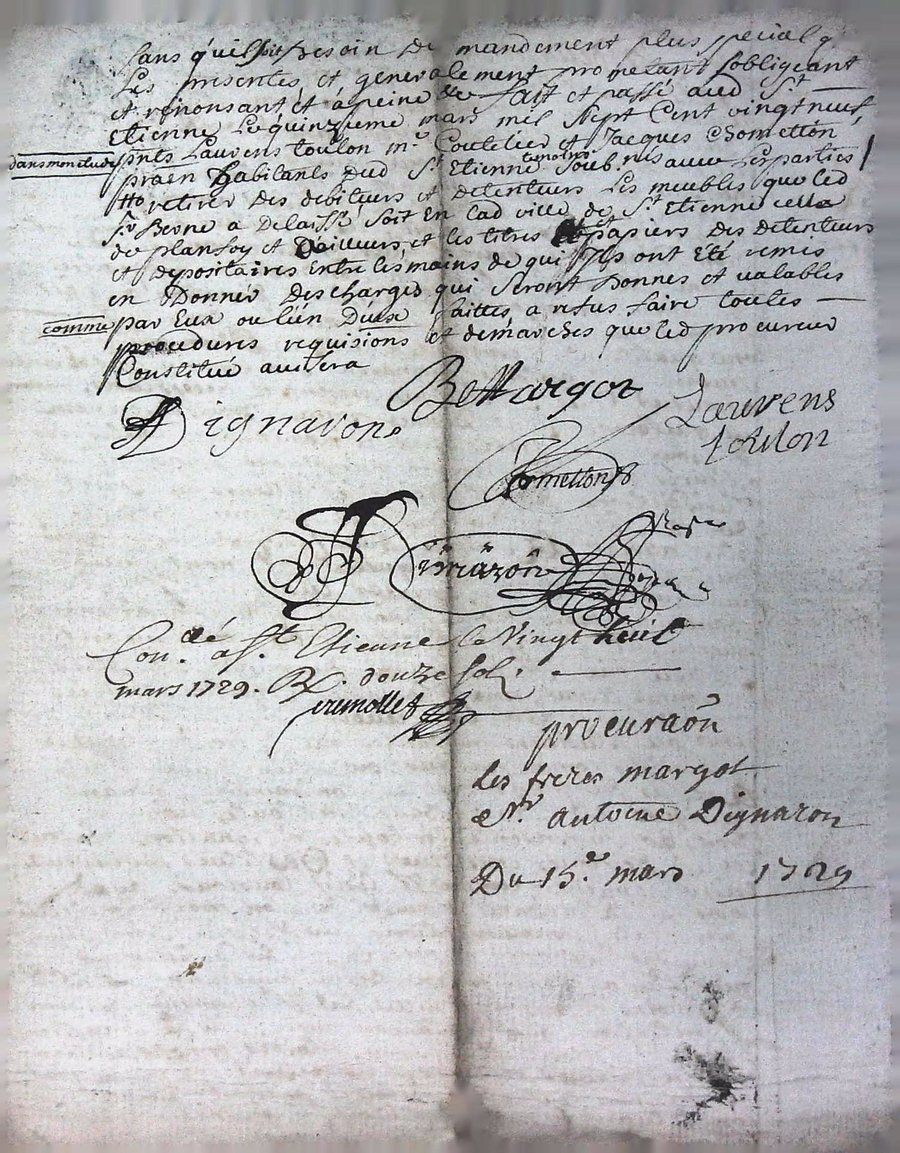 sans quil soit besoin de mandement plus special q
Les presentes et generalement prometant sobligeant
et renonsant et a peine &c fait et passé aud St
Etienne Le quinzieme mars mil sept Cent vingt neuf
dans mon etude pnts Laurens toulon mre Coutelier et Jacques Chometton
praen habitants dud St Etienne temoins soub.nes avec Les parties
retirer des debiteurs et detenteurs Les meubles que led
sr Besne a delaissé soit En lad ville de St Etienne cella
de planfoy et d'ailleurs et les titres et papiers des detenteurs
et depositaires Entre les mains de qui Ils ont été remis
en donner descharges qui seront bonnes et valables
comme par Eux ou lun deux faittes a refus faire toutes
procedures requisions et demarches que led procureur
Constitué avisera
Be Margot
Dignaron
Laurens
toulon
Chometton
Con.llé a St Etienne le vingt huit
mars 1729. R. douze sols
procuraon
les freres margot
a Sr. antoine Dignaron
Du 15.e mars 1729